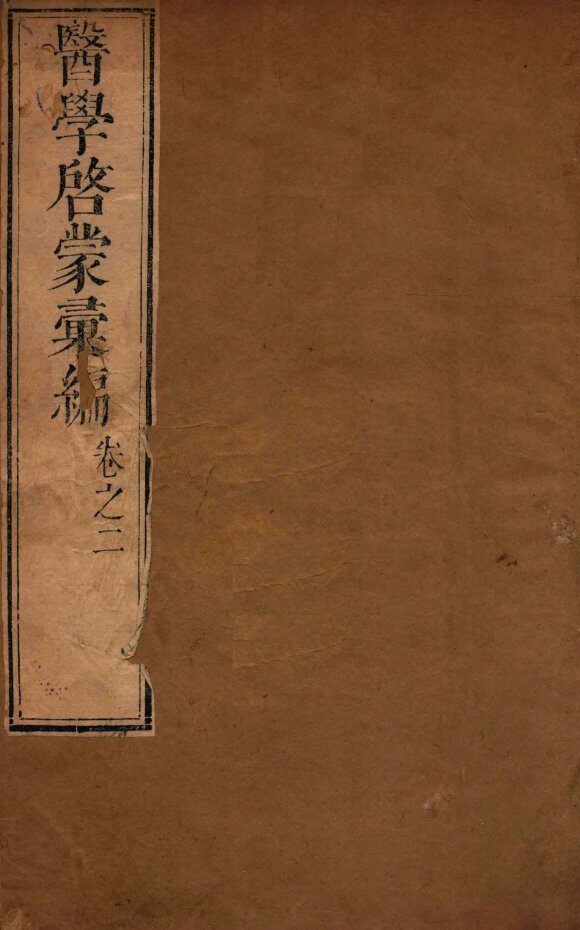 醫學啓蒙彙編
卷之二